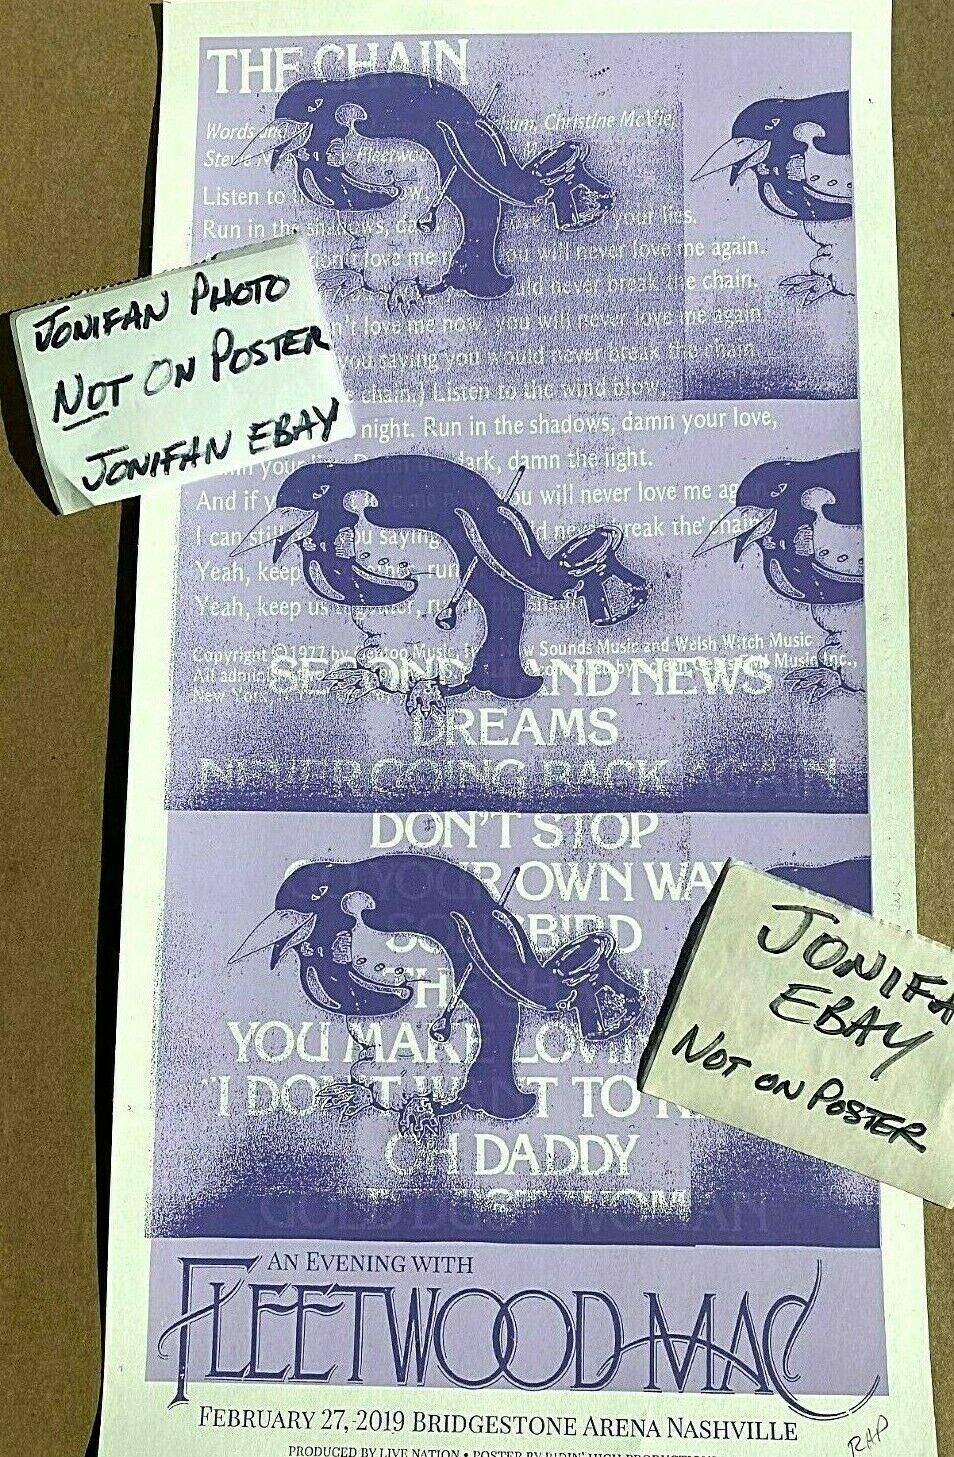 THE CHAIN
Words and ham, Christine McVie,
Stevie N Fleetwoo
Listen to
Run in the shadows, da your lies.
don't love me n ou will never love me again.
uld never break the chain.
n't love me now, you will never love me again.
you saying you would never break the chain.
e chain.) Listen to the wind blow,
night. Run in the shadows, damn your love,
your dark, damn the light.
And if y ou will never love me ag
I can still you saying d never break the chain
Yeah, keep run
Yeah, keep us together, run
Copyright ©1977 by Music, Sounds Music and Welsh Witch Music
All Music Inc.,
New York
SECOND HAND NEWS
DREAMS
NEVER GOING BACK AGAIN
DON'T STOP
GO YOUR OWN WAY
SONGBIRD
THE CHAIN
YOU MAKE LOVIN
"I DON'T WANT TO K
OH DADDY
GOLD DUST WOMAN
JONIFAN PHOTO
NOT ON POSTER
JONIFAN EBAY
JONIFA
EBAY
NOT ON POSTER
AN EVENING WITH
FLEETWOOD MAC
FEBRUARY 27, 2019 BRIDGESTONE ARENA NASHVILLE
RAP
PRODUCED BY LIVE NATION • POSTER BY RIDIN' HIGH PRODUCTION